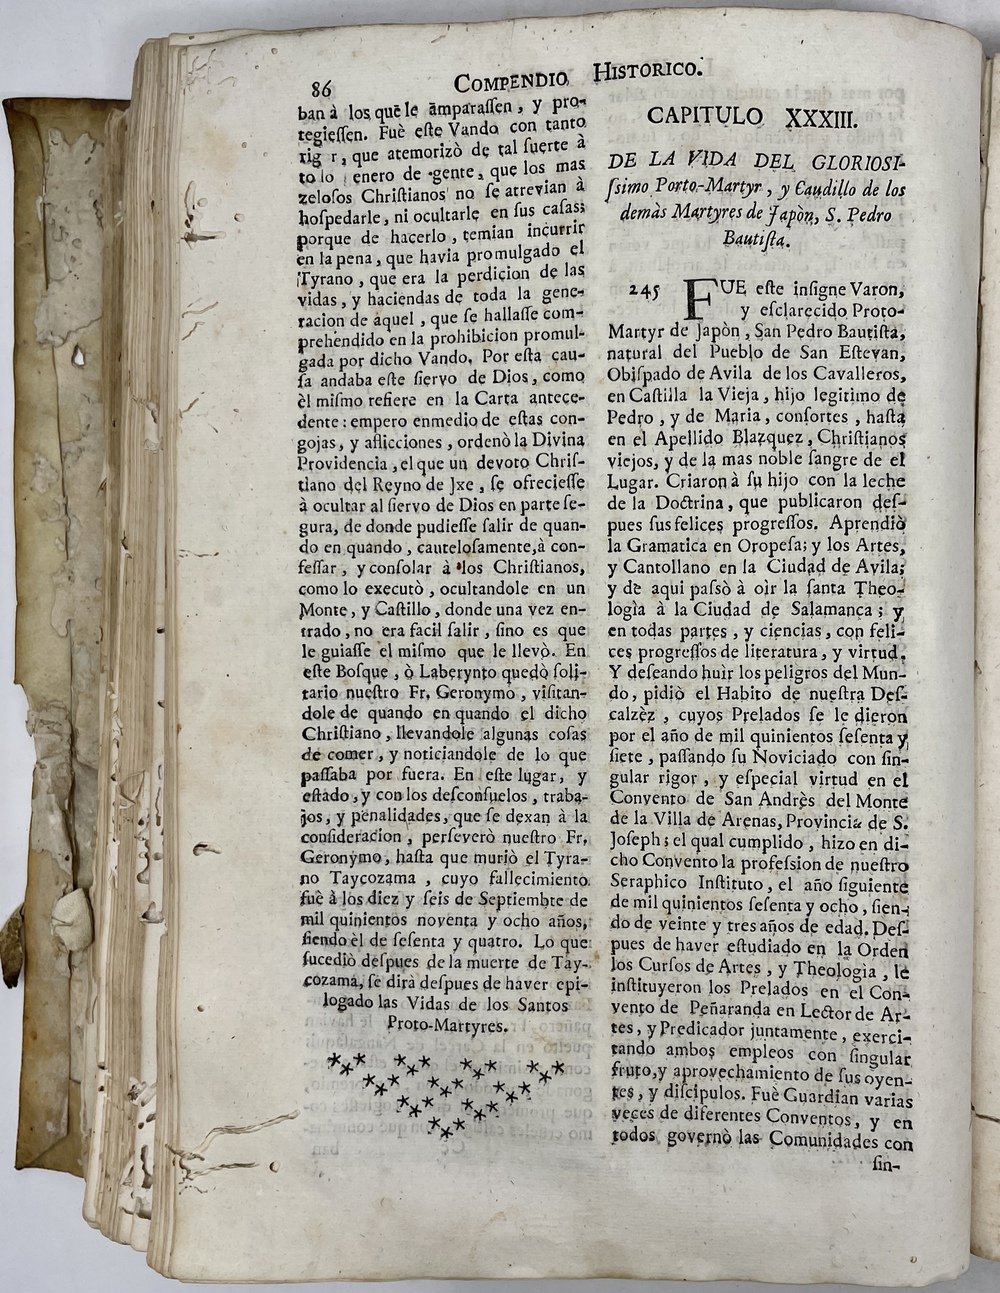 86
COMPENDIO HISTORICO.
ban à los què le āmparaſſen, y pro-
tegieſſen. Fuè eſte Vando con tanto
rig r, que atemorizò de tal ſuerte à
to lo enero de gente, que los mas
zeloſos Chriſtianos no ſe atrevian à
hoſpedarle, ni ocultarle en ſus caſas;
porque de hacerlo, temian incurrir
en la pena, que havia promulgado el
Tyrano, que era la perdicion de las
vidas, y haciendas de toda la gene-
racion de aquel, que ſe hallaſſe com-
prehendido en la prohibicion promul-
gada por dicho Vando. Por eſta cau-
ſa andaba eſte ſiervo de Dios, como
èl miſmo refiere en la Carta antece-
dente: empero enmedio de eſtas con-
gojas, y aflicciones, ordenò la Divina
Providencia, el que un devoto Chriſ-
tiano del Reyno de Jxe, ſe ofrecieſſe
à ocultar al ſiervo de Dios en parte ſe-
gura, de donde pudieſſe ſalir de quan-
do en quando, cauteloſamente, à con-
feſſar, y conſolar à los Chriſtianos,
como lo executò, ocultandole en un
Monte, y Caſtillo, donde una vez en-
trado, no era facil ſalir, ſino es que
le guiaſſe el miſmo que le llevò. En
eſte Boſque, ò Laberynto quedò ſoli-
tario nueſtro Fr. Geronymo, viſitan-
dole de quando en quando el dicho
Chriſtiano, llevandole algunas coſas
de comer, y noticiandole de lo que
paſſaba por fuera. En eſte lugar, y
eſtado, y con los deſconſuelos, traba-
jos, y penalidades, que ſe dexan à la
conſideracion, perſeverò nueſtro Fr.
Geronymo, haſta que muriò el Tyra-
no Taycozama, cuyo fallecimiento
fuè à los diez y ſeis de Septiembre de
mil quinientos noventa y ocho años,
ſiendo èl de ſeſenta y quatro. Lo que
ſucediò deſpues de la muerte de Tay-
cozama, ſe dirà deſpues de haver epi-
logado las Vidas de los Santos
Proto-Martyres.
CAPITULO XXXIII.
DE LA VIDA DEL GLORIOSI-
ſsimo Porto-Martyr, y Caudillo de los
demàs Martyres de Japòn, S. Pedro
Bautiſta.
245 FUE eſte inſigne Varon,
y eſclarecido Proto-
Martyr de Japòn, San Pedro Bautiſta,
natural del Pueblo de San Eſtevan,
Obiſpado de Avila de los Cavalleros,
en Caſtilla la Vieja, hijo legitimo de
Pedro, y de Maria, conſortes, haſta
en el Apellido Blazquez, Chriſtianos
viejos, y de la mas noble ſangre de el
Lugar. Criaron à ſu hijo con la leche
de la Doctrina, que publicaron deſ-
pues ſus felices progreſſos. Aprendiò
la Gramatica en Oropeſa; y los Artes,
y Cantollano en la Ciudad de Avila;
y de aqui paſsò à oìr la ſanta Theo-
logìa à la Ciudad de Salamanca; y
en todas partes, y ciencias, con feli-
ces progreſſos de literatura, y virtud.
Y deſeando huìr los peligros del Mun-
do, pidiò el Habito de nueſtra Deſ-
calzèz, cuyos Prelados ſe le dieron
por el año de mil quinientos ſeſenta y
ſiete, paſſando ſu Noviciado con ſin-
gular rigor, y eſpecial virtud en el
Convento de San Andrès del Monte
de la Villa de Arenas, Provincia de S.
Joſeph; el qual cumplido, hizo en di-
cho Convento la profeſsion de nueſtro
Seraphico Inſtituto, el año ſiguiente
de mil quinientos ſeſenta y ocho, ſien-
do de veinte y tres años de edad. Deſ-
pues de haver eſtudiado en la Orden
los Curſos de Artes, y Theologìa, le
inſtituyeron los Prelados en el Con-
vento de Peñaranda en Lector de Ar-
tes, y Predicador juntamente, exerci-
tando ambos empleos con ſingular
fruto, y aprovechamiento de ſus oyen-
tes, y diſcipulos. Fuè Guardian varias
veces de diferentes Conventos, y en
todos governò las Comunidades con
ſin-